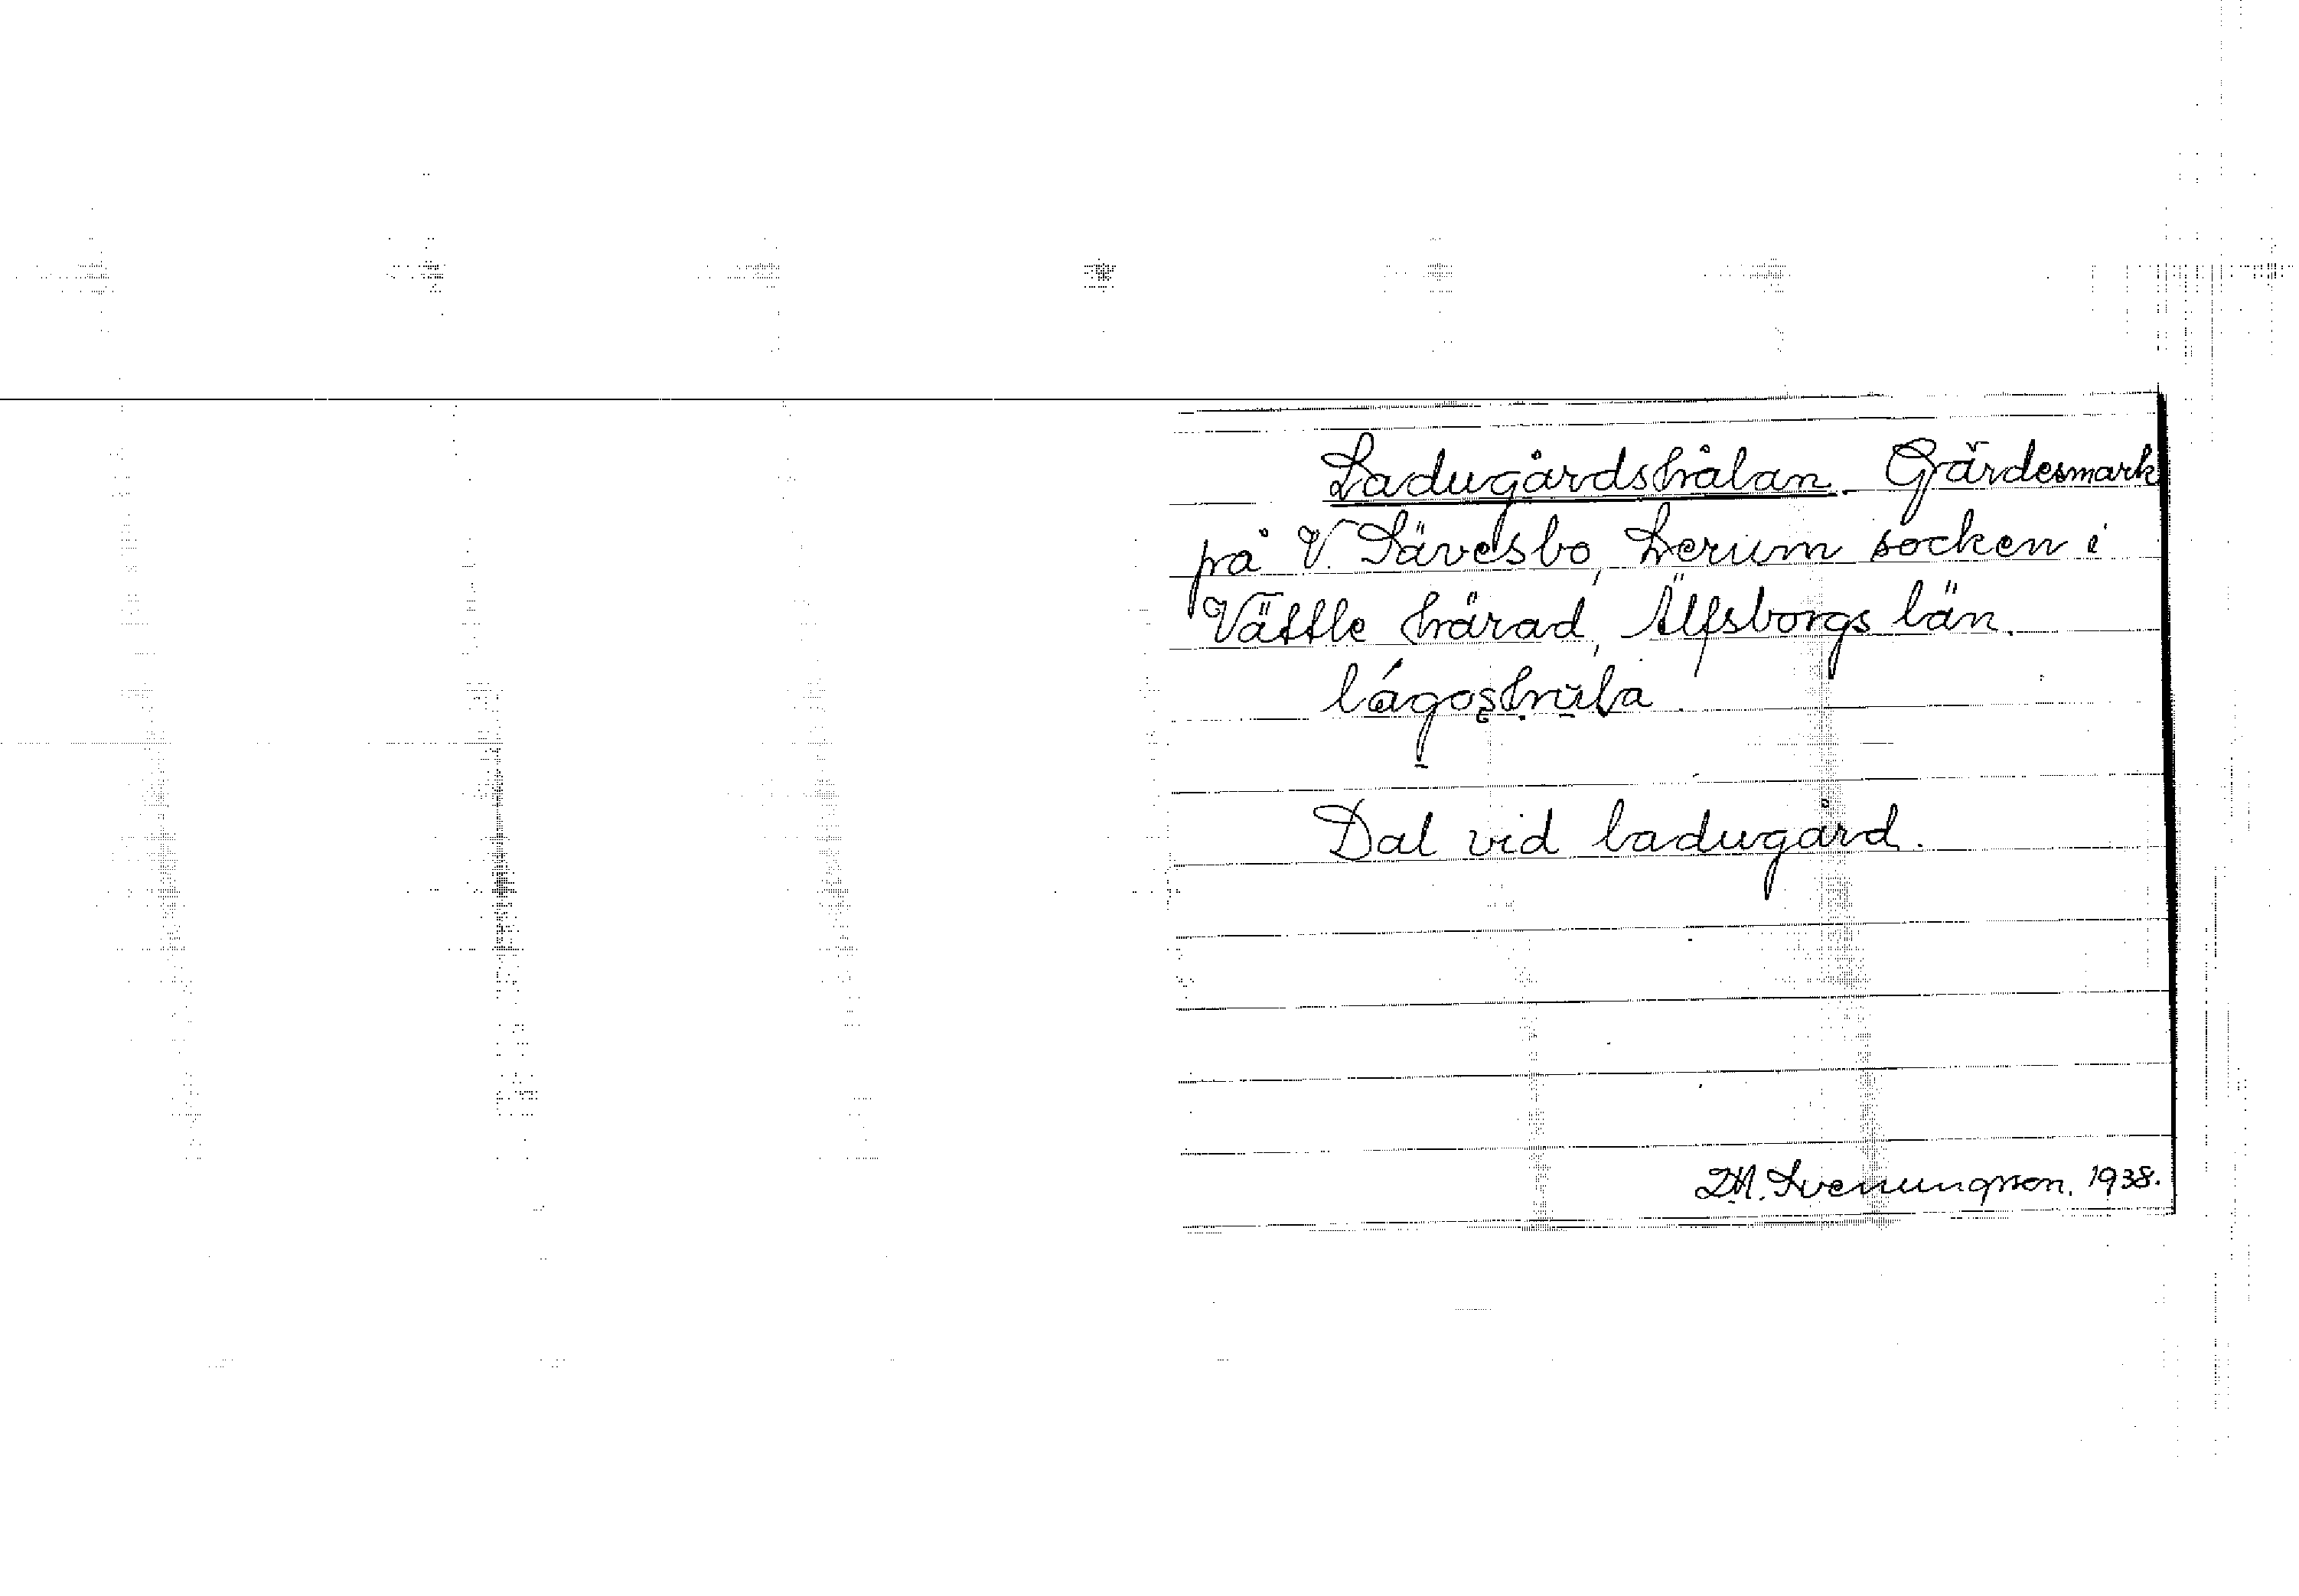 Ladugårdshålan. Gärdesmark
på V. Sävesbo, Lerum socken i
Vättle härad, Älfsborgs län.
lágoshūla.
Dal vid ladugård.
Svenungsson. 1938.